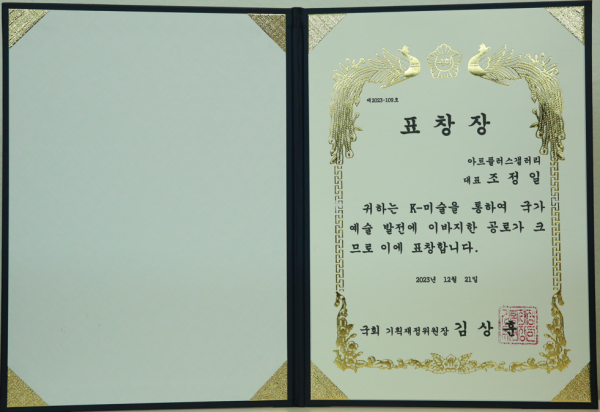 제2023-105호
표 창 장
아트플러스갤러리
대표 조 정 일
귀하는 K-미술을 통하여 국가
예술 발전에 이바지한 공로가 크
므로 이에 표창합니다.
2023년 12월 21일
국회 기획재정위원장 김 상 훈